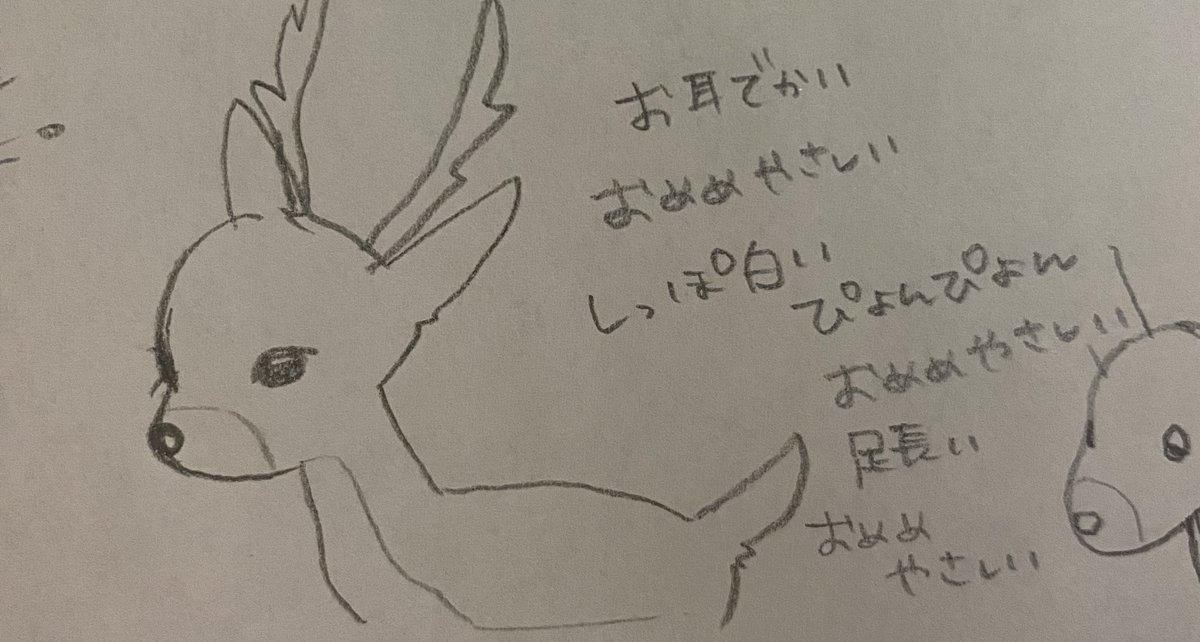 お耳でかい
おめめやさしい
しっぽ白い
ぴょんぴょん
おめめやさしい
足長い
おめめ
やさしい